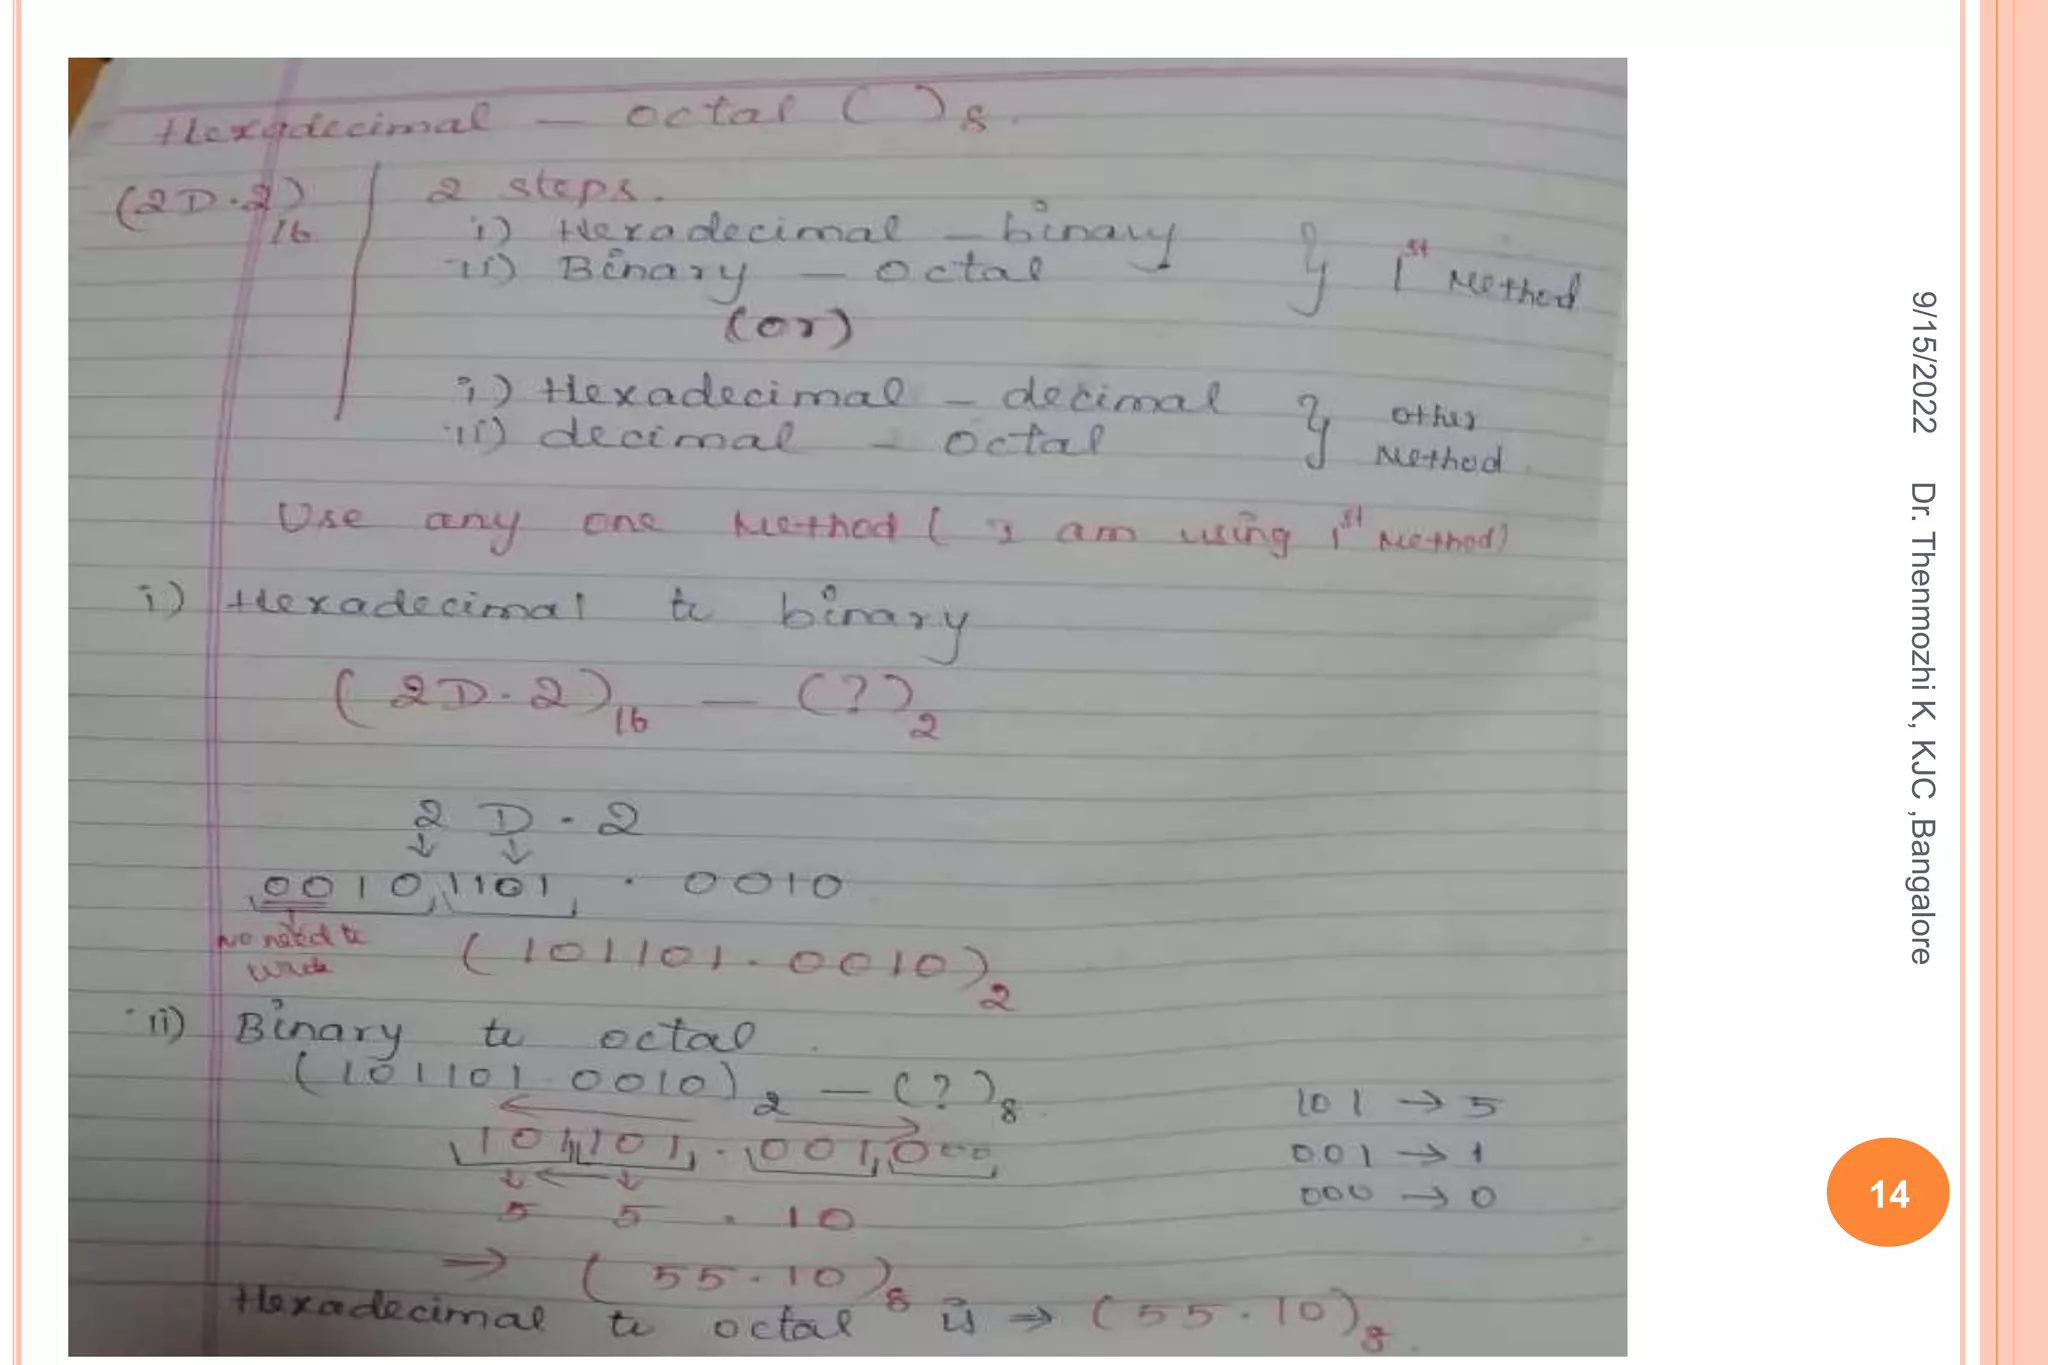 Hexadecimal – octal ( )8.
(2D.2)16
2 steps.
i) Hexadecimal – binary
ii) Binary – octal
} 1st Method
(or)
i) Hexadecimal – decimal
ii) decimal – octal
} other Method
Use any one Method ( I am using 1st Method)
i) Hexadecimal to binary
(2D.2)16 – (?)2
2 D . 2
↓ ↓
0010 1101 . 0010
No need to
write
(101101.0010)2
ii) Binary to octal.
(101101.0010)2 – (?)8
101 101 . 001 000
↓ ← ↓
5 5 . 10
101 → 5
001 → 1
000 → 0
⇒ (55.10)8
Hexadecimal to octal is ⇒ (55.10)8.
9/15/2022 Dr. Thenmozhi K, KJC ,Bangalore
14